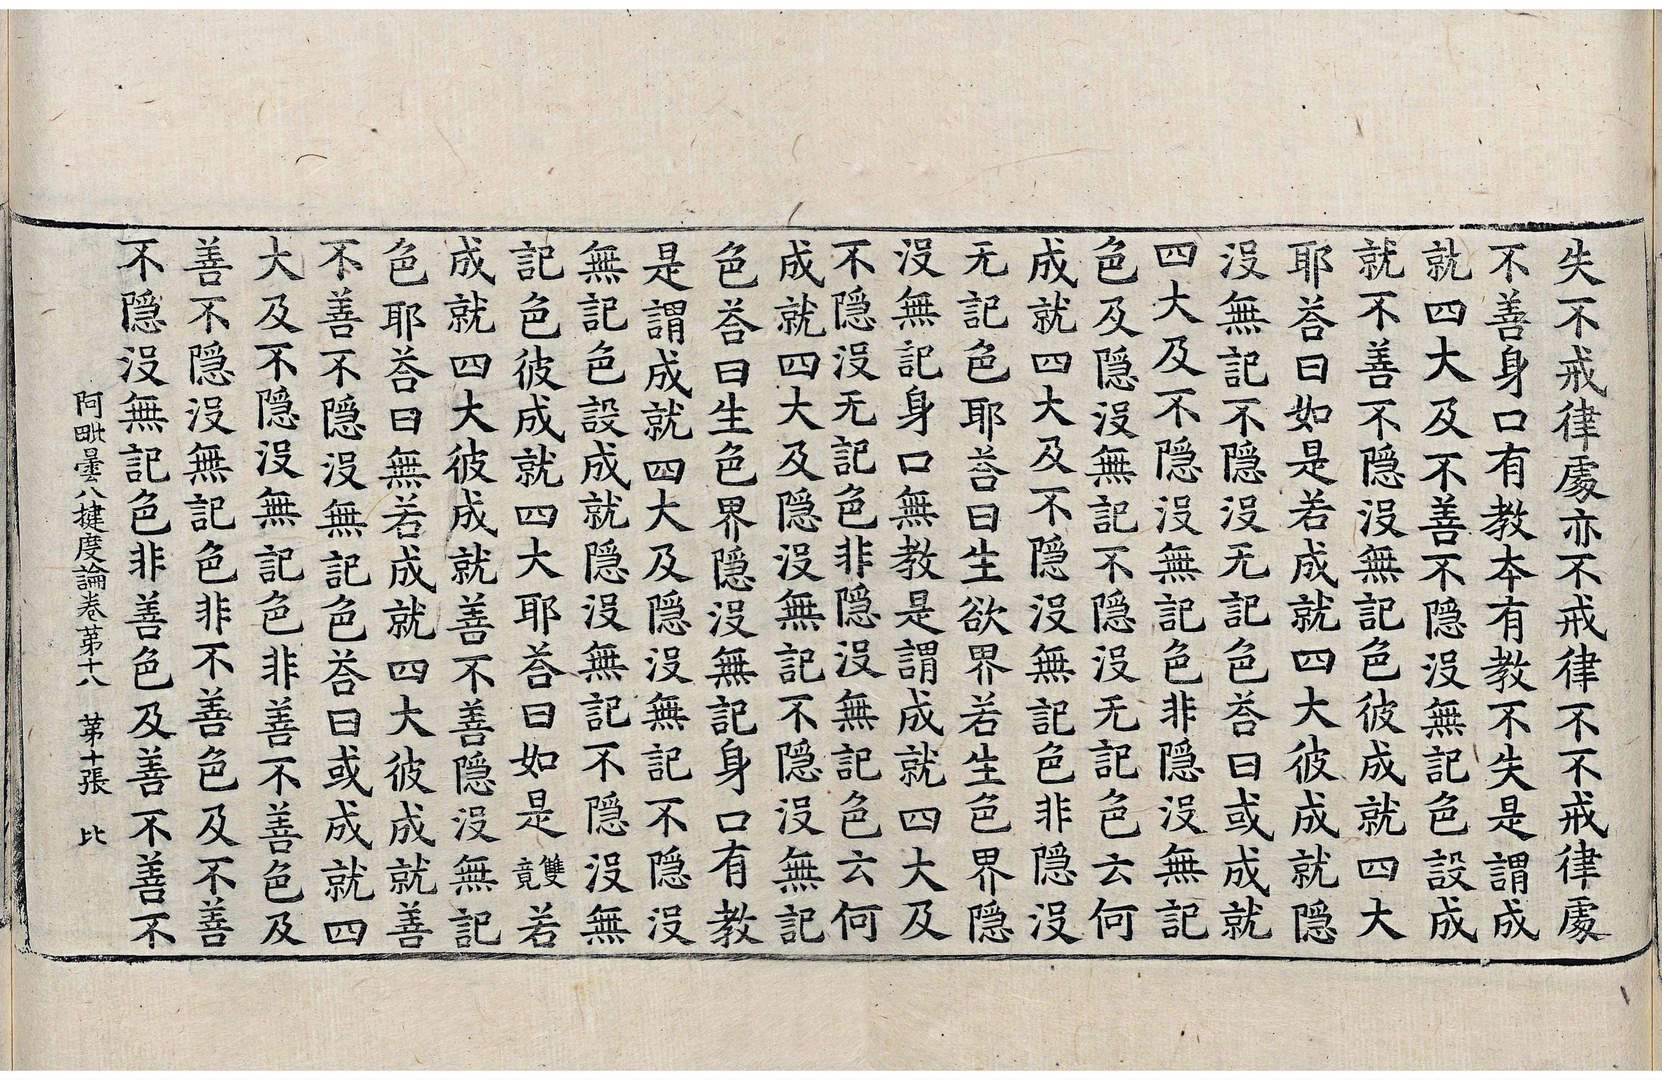 失不戒律處亦不戒律不不戒律處
不善身口有教本有教不失是謂成
就四大及不善不隱沒無記色設成
就不善不隱沒無記色彼成就四大
耶荅曰如是若成就四大彼成就隱
沒無記不隱沒无記色荅曰或成就
四大及不隱沒無記色非隱沒無記
色及隱沒無記不隱沒无記色云何
成就四大及不隱沒無記色非隱沒
无記色耶荅曰生欲界若生色界隱
沒無記身口無教是謂成就四大及
不隱沒无記色非隱沒無記色云何
成就四大及隱沒無記不隱沒無記
色荅曰生色界隱沒無記身口有教
是謂成就四大及隱沒無記不隱沒
無記色設成就隱沒無記不隱沒無
記色彼成就四大耶荅曰如是雙竟若
成就四大彼成就善不善隱沒無記
色耶荅曰無若成就四大彼成就善
不善不隱沒無記色荅曰或成就四
大及不隱沒無記色非善不善色及
善不隱沒無記色非不善色及不善
不隱沒無記色非善色及善不善不
阿毗曇八揵度論卷苐十八　苐十張　比